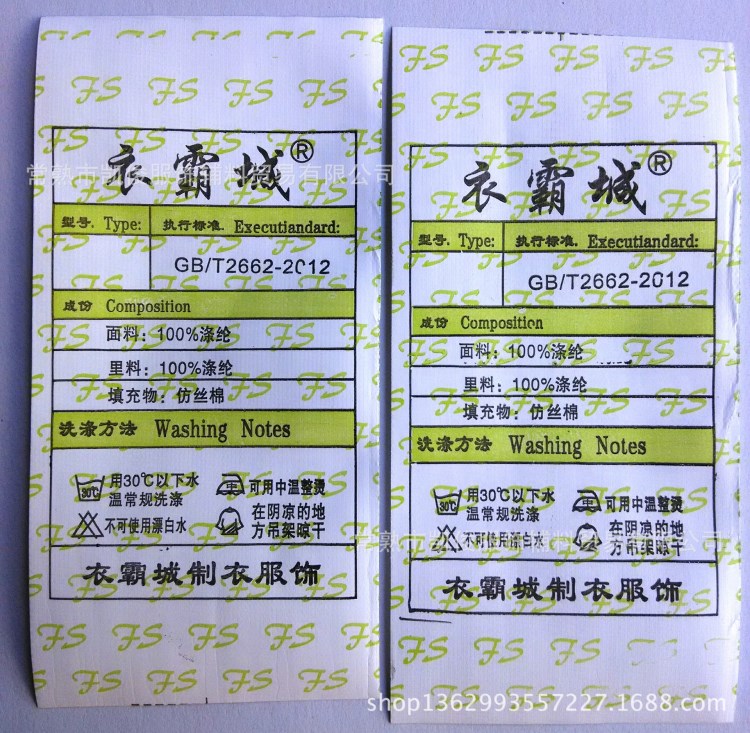 衣霸城®
型号. Type: 执行标准. Executiandard:
GB/T2662-2012
成份 Composition
面料：100%涤纶
里料：100%涤纶
填充物：仿丝棉
洗涤方法 Washing Notes
30℃ 用30℃以下水 可用中温整烫
温常规洗涤
不可使用漂白水 在阴凉的地
方吊架晾干
衣霸城制衣服饰
衣霸城®
型号. Type: 执行标准. Executiandard:
GB/T2662-2012
成份 Composition
面料：100%涤纶
里料：100%涤纶
填充物：仿丝棉
洗涤方法 Washing Notes
30℃ 用30℃以下水 可用中温整烫
温常规洗涤
不可使用漂白水 在阴凉的地
方吊架晾干
衣霸城制衣服饰
FS FS FS FS FS FS
shop1362993557227.1688.com